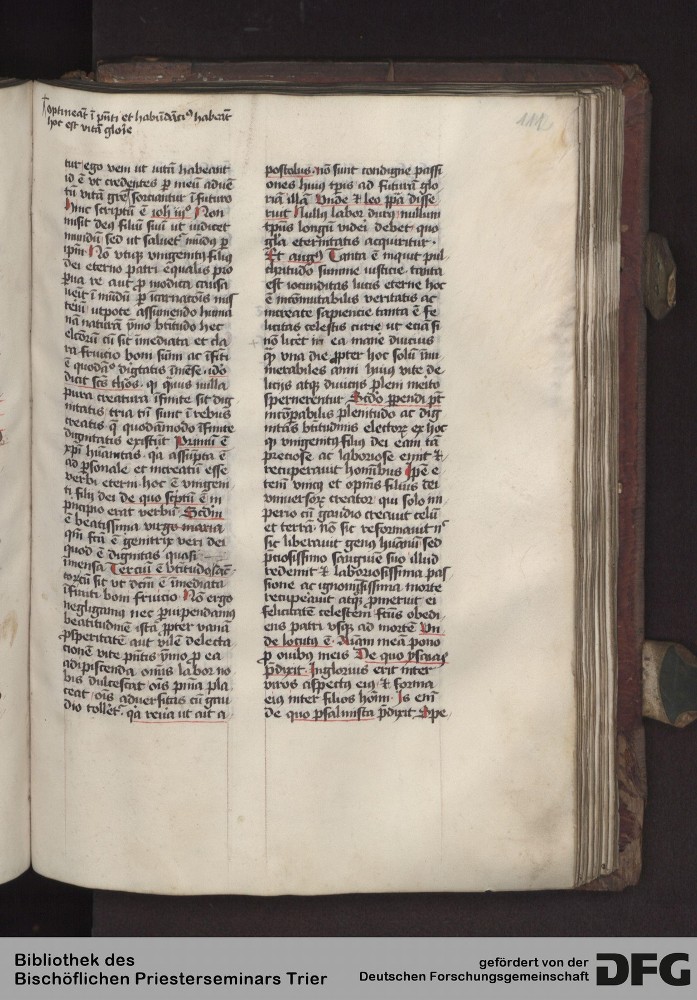 optineāt ī pn̄ti et habūdāciꝰ habeāt
hoc est vitā glorie
111
tur ego veni ut uitā habeant
id ē vt credentes ꝑ meū aduē
tū vitā gr̄e sorciantur ī futuro
Hinc scriptū ē ioh iijº Non
misit deꝰ filiū suū ut iudicet
mundū sed ut saluet᷑ mūdꝰ ꝑ
ipm̄ Nō vtiqꝫ vnigenitꝰ filiꝰ
dei eterno patri equalis pro
ꝑua re aut ꝓ modica causa
ueīt ī mūdū ꝑ īcarnatoīs mis
teriū utpote assumendo huma
nā naturā ymo btitudo hec
elcōrū cū sit īmediata et cla
ra fruicio boni sūmi ac īfiti
ē quodāº dignitatis īmēse ideo
dicit scs̄ thos qꝫ quis nulla
pura creatura īfinite sit dig
nitatis tria tn̄ sunt ī rebus
creatis qͥ quodāmodo īfinite
dignitatis existūt Primū ē
xp̄i hūanitas qꝛ assūpta ē
ad ꝑsonale et increatū esse
verbi eterni hoc ē vnigeni
ti filij dei de quo sc̄ptū ē in
pͥncipio erat verbū Scdm̄
ē beatissima virgo maria
qm̄ fcā ē genitrix veri dei
quod ē dignitas quasi
īmensa Terciū ē btitudo sāc
toꝝ cū sit vt dcm̄ ē īmediata
īfiniti boni fruicio Nō ergo
negligamꝰ nec ꝑuipendamꝰ
beatitudinē istā ꝓpter vanā
ꝓsperitatē aut vilē delecta
cionē vite pn̄tis ymo ꝓ ea
adipiscenda omīs labor no
bis dulcescat oīs pena pla
ceat oīs aduersitas cū gau
dio tollet᷑ qꝛ reuera ut ait a
postolus nō sunt condigne passi
ones huiꝰ tp̄is ad futurā glo
riā illā Vnde ⁊ leo pp̄a disse
ruit Nullꝰ labor durꝰ nullum
tp̄us longū videri debet quo
gl̄a eternitatis acquiritur
Et augꝰ Tanta ē inquit pul
chritudo summe iusticie tanta
est iocunditas lucis eterne hoc
ē incōmutabilis veritatis ac
increate sapiencie tanta ē fe
licitas celestis curie ut eciā si
nō licēt in ea manē diucius
qͣ vna die ꝓpter hoc solū īnu
merabiles anni huiꝰ vite de
licijs atqꝫ diuicijs pleni merito
spernerentur Scdo ꝑpendi pt̄
incōꝑabilis plenitudo ac dig
nitās btitudinis electoꝝ ex hoc
qꝫ vnigenitꝰ filiꝰ dei eam tā
preciose ac laboriose emit ⁊
recuperauit hominibus Ipse ē
tem̄ vnicꝰ et optimꝰ filius dei
vniuersoꝝ creator qui solo im
perio cū gaudio creauit celū
et terrā nō sic reformauit nͨ
sic liberauit genꝰ hūanū sed
p̄ciosissimo sanguīe suo illud
redemit ⁊ laboriosissima pas
sione ac ignominiosissima morte
recuperauit atqꝫ ꝓmeruit ei
felicitatē celestem fcūs obedi
ens patri vsqꝫ ad mortē Vn
de locutꝰ ē Aīam meā pono
ꝓ ouibꝰ meis De quo ysayas
p̄dixit Inglorius erit inter
viros aspectꝰ eiꝰ ⁊ forma
eiꝰ inter filios hōim̄ Is enī
de quo psalmista p̄dixit Spe
Bibliothek des
Bischöflichen Priesterseminars Trier
gefördert von der
Deutschen Forschungsgemeinschaft
DFG